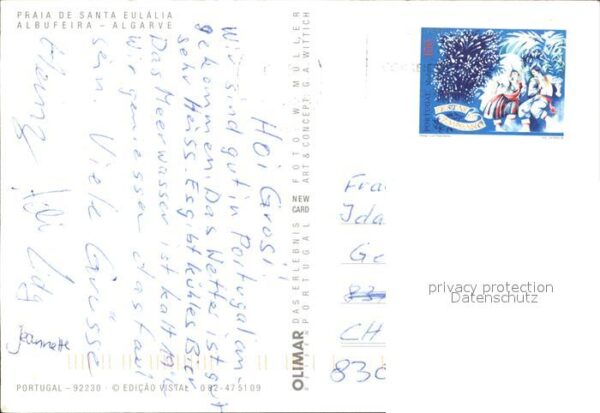 PRAIA DE SANTA EULÁLIA
ALBUFEIRA – ALGARVE
Hoi Grosi!
Wir sind gut in Portugal an-
gekommen. Das Wetter ist gut
sehr Heiss. Es gibt kühles Bier
Das Meerwasser ist kalt
Wir geniessen das faul
sein. Viele Grüsse
Heinz
Jeannette
PORTUGAL – 92230 · © EDIÇÃO VISTAL · 082-475109
OLIMAR DAS ERLEBNIS
REISEN PORTUGAL
NEW CARD
FOTO: M. MÜLLER
ART & CONCEPT: G.A. WITTICH
PORTUGAL
Fra
Ida
Ge
CH
830
privacy protection
Datenschutz